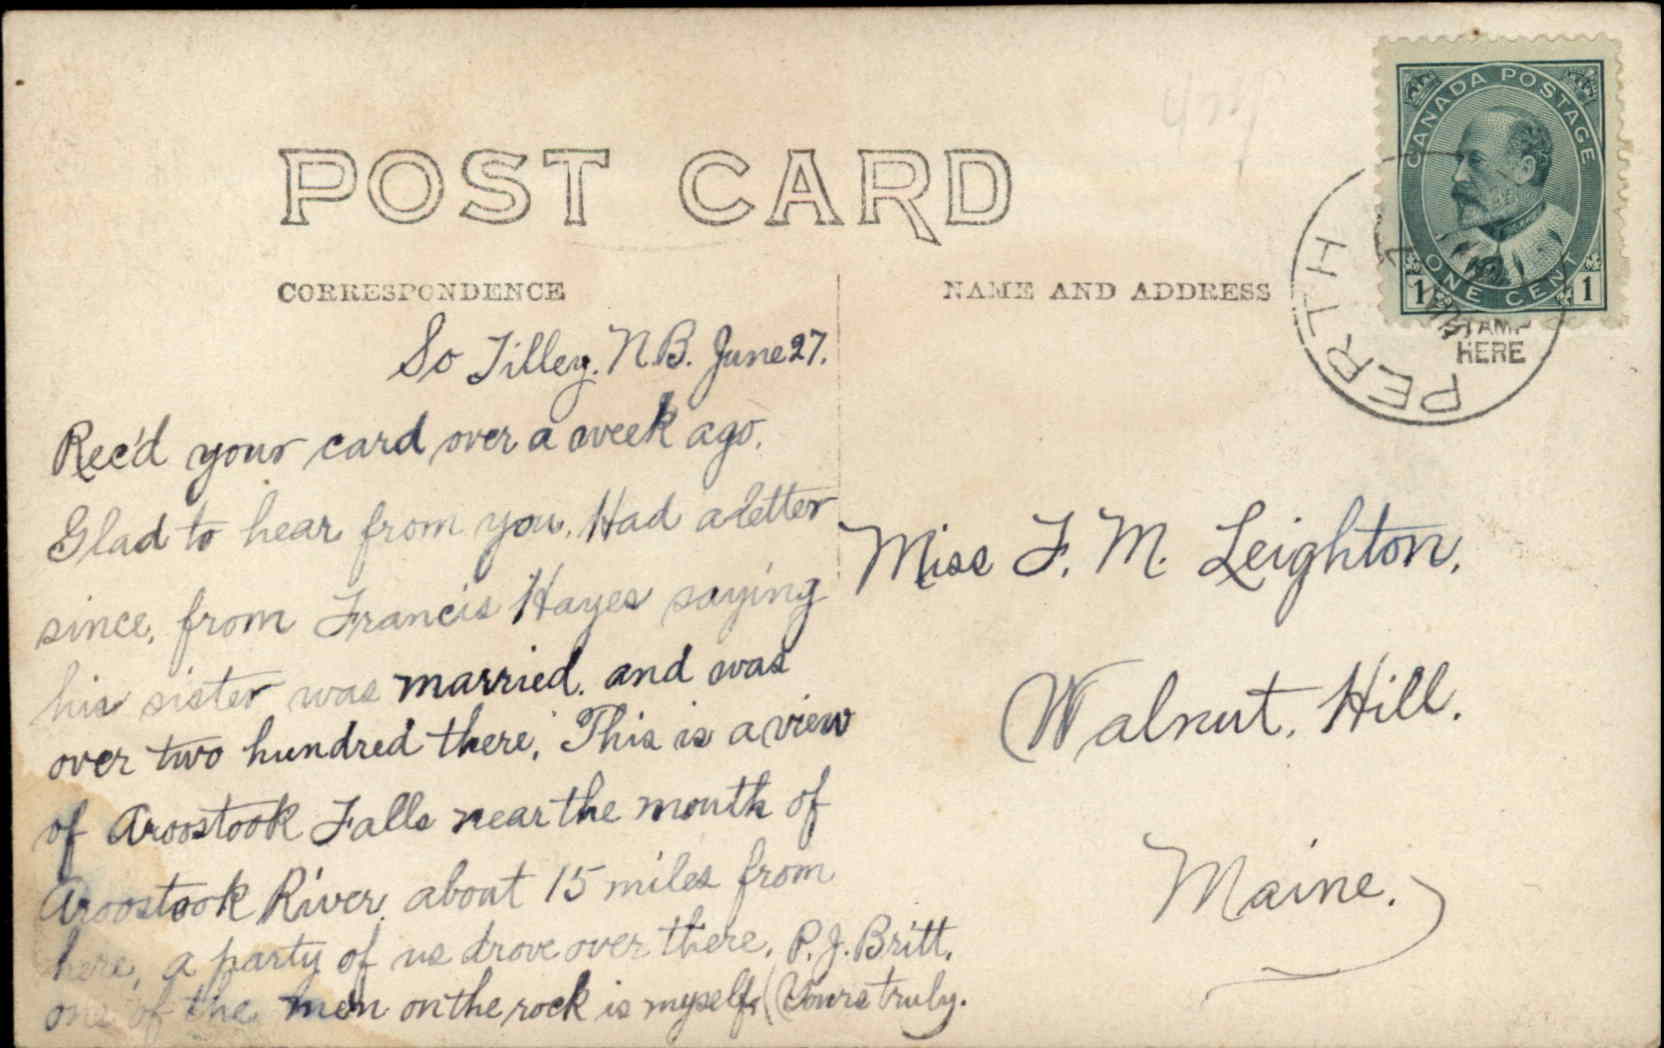 POST CARD
CORRESPONDENCE
NAME AND ADDRESS
CANADA POSTAGE
ONE CENT
1 1
STAMP
HERE
PERTH
So Tilley. N.B. June 27.
Rec'd your card over a week ago.
Glad to hear from you. Had a letter
since, from Francis Hayes saying
his sister was married. and was
over two hundred there. This is a view
of Aroostook Falls near the mouth of
Aroostook River. about 15 miles from
here, a party of us drove over there. P. J. Britt.
one of the men on the rock is myself. (Yours truly.
Miss F. M. Leighton.
Walnut. Hill.
Maine.